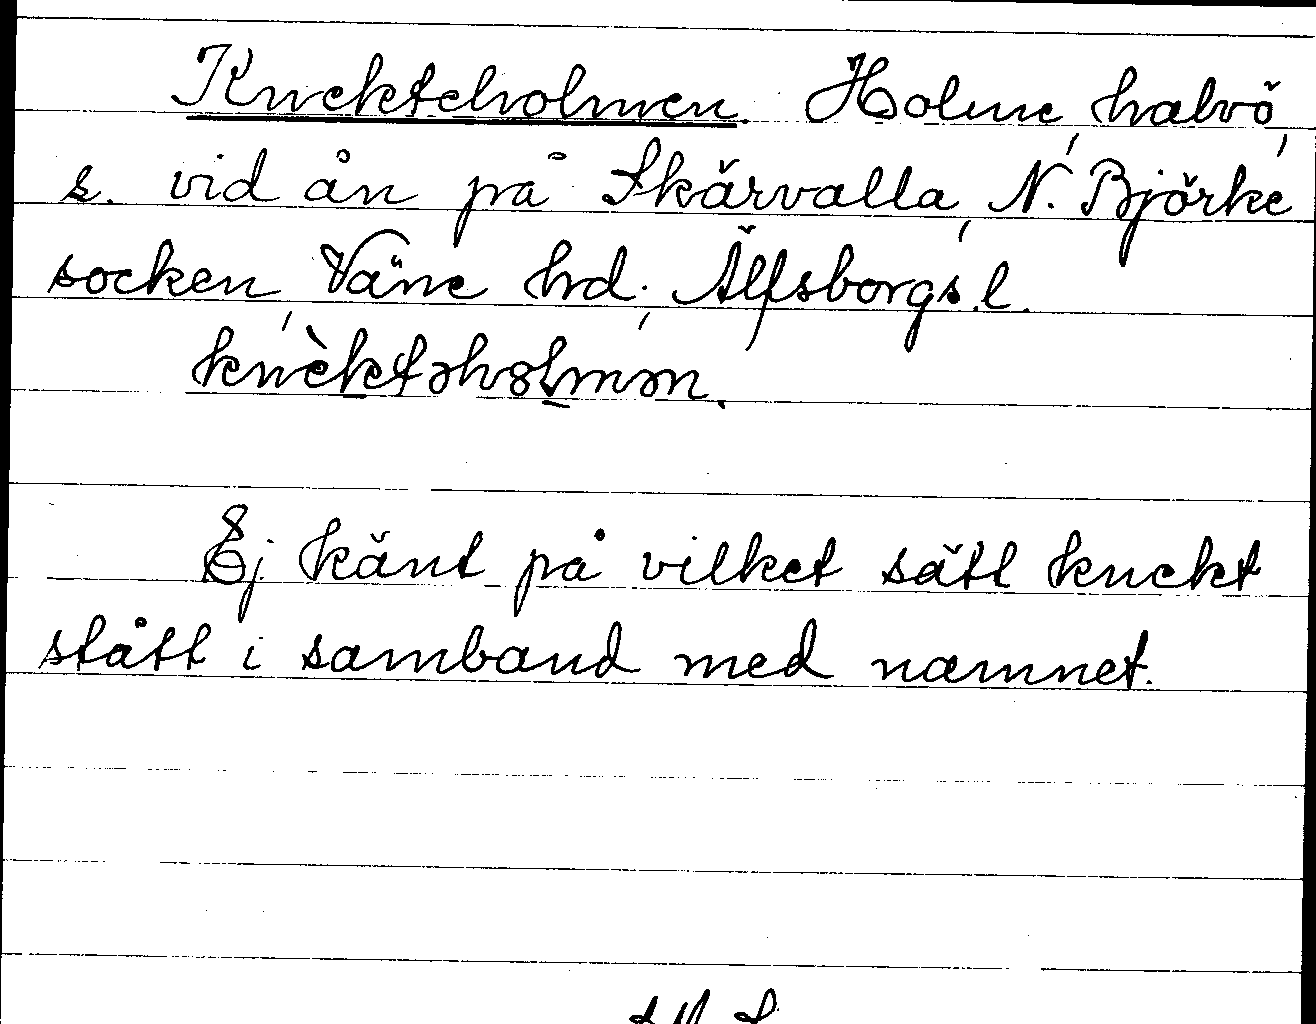 Knekteholmen. Holme, halvö,
s. vid ån på Skärvalla, N. Björke
socken, Väne hd., Älfsborgs l.
knèktəhɷlmən.
Ej känt på vilket sätt knekt
stått i samband med namnet.